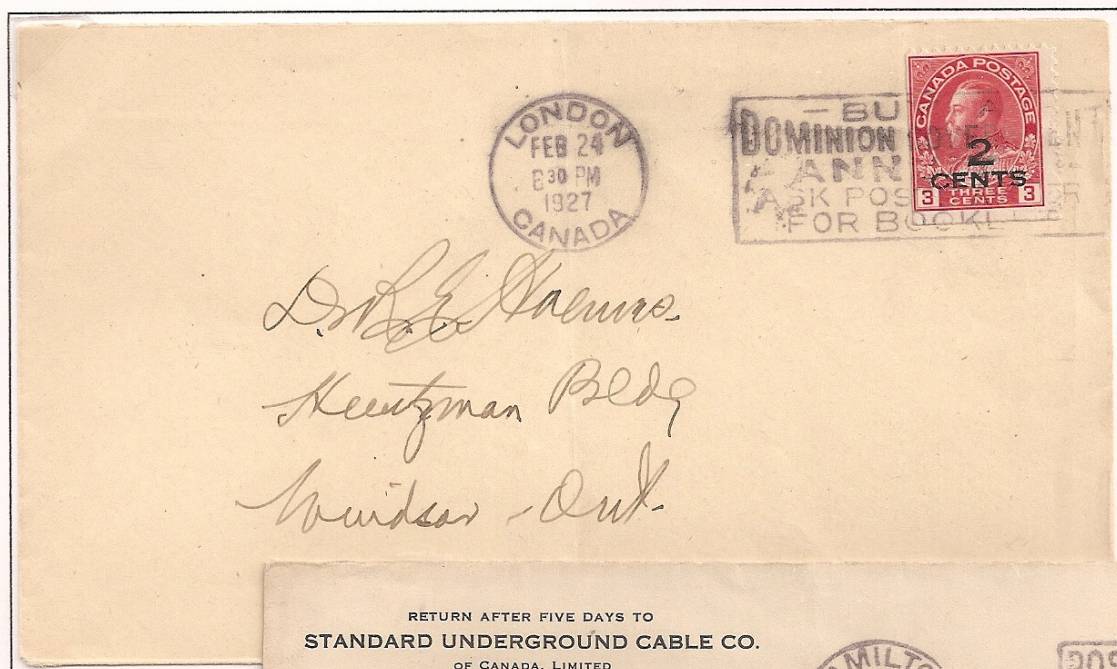 LONDON
FEB 24
8 30 PM
1927
CANADA
DOMINION
ASK
FOR
CANADA POSTAGE
2
CENTS
3 THREE CENTS 3
Dr R. E.
Heintzman Bldg
Windsor - Ont.
RETURN AFTER FIVE DAYS TO
STANDARD UNDERGROUND CABLE CO.
OF CANADA, LIMITED